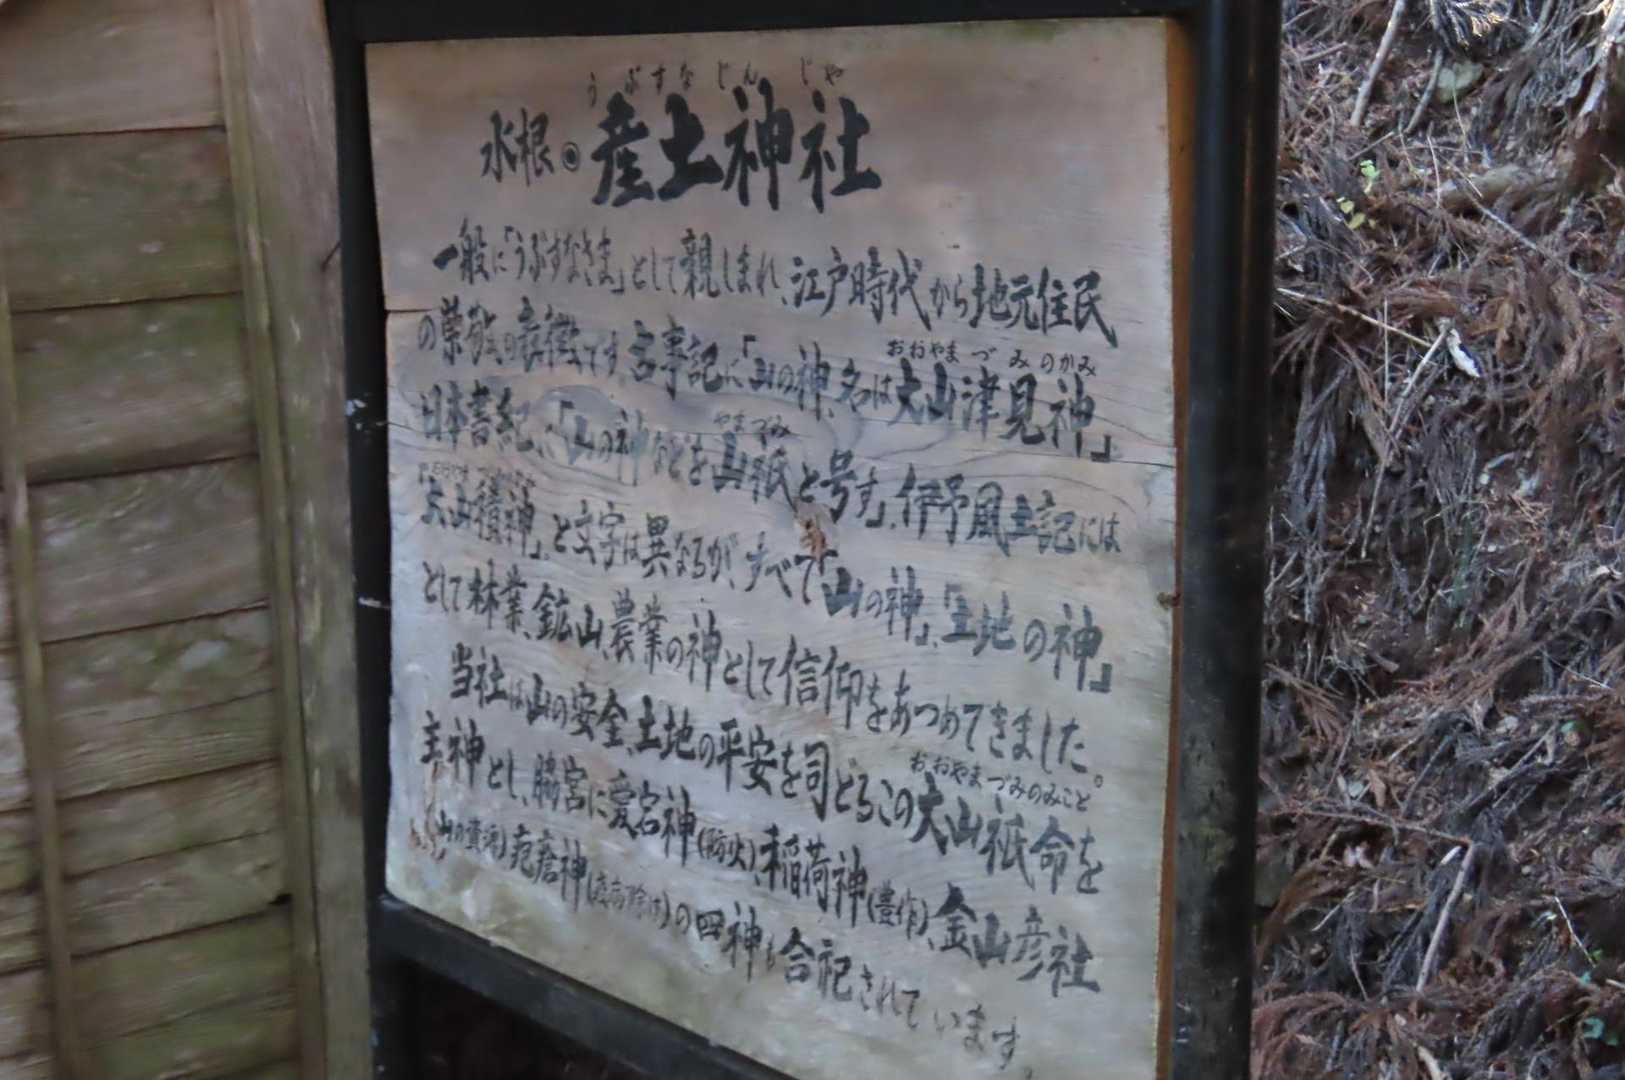 うぶすなじんじゃ
水根◉産土神社
一般に「うぶすなさま」として親しまれ、江戸時代から地元住民
の崇敬の表徴です。古事記に「山の神、名は大山津見神」
おおやまづみのかみ
日本書紀に「山の神などを山祇と号す」、伊予風土記には
やまつみ
「大山積神」。と文字は異なるが、すべて「山の神」、「土地の神」
として林業、鉱山、農業の神として信仰をあつめてきました。
当社は山の安全、土地の平安を司どるこの大山祇命を
おおやまづみのみこと
主神とし、脇宮に愛宕神(防火)、稲荷神(豊作)、金山彦社
(山の資源)疱瘡神()の四神も合祀されています。